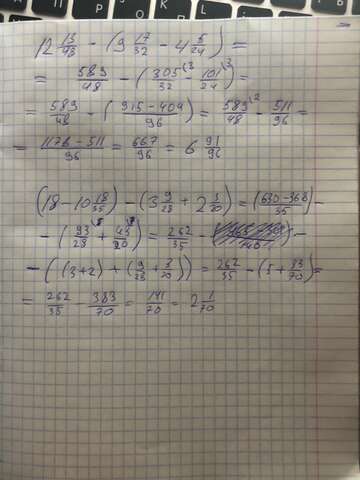 12 13/48 - (9 17/32 - 4 5/24) =
= 589/48 - (305/32 - 101/24) =
= 589/48 - (915-404/96) = 589/48 - 511/96 =
= 1178-511/96 = 667/96 = 6 91/96
(18-10 18/35) - (3 9/28 + 2 3/20) = (630-368/35) -
- (93/28 + 43/20) = 262/35 -
- ((3+2) + (9/28 + 3/20)) = 262/35 - (5 + 33/70) =
= 262/35 - 383/70 = 141/70 = 2 1/70